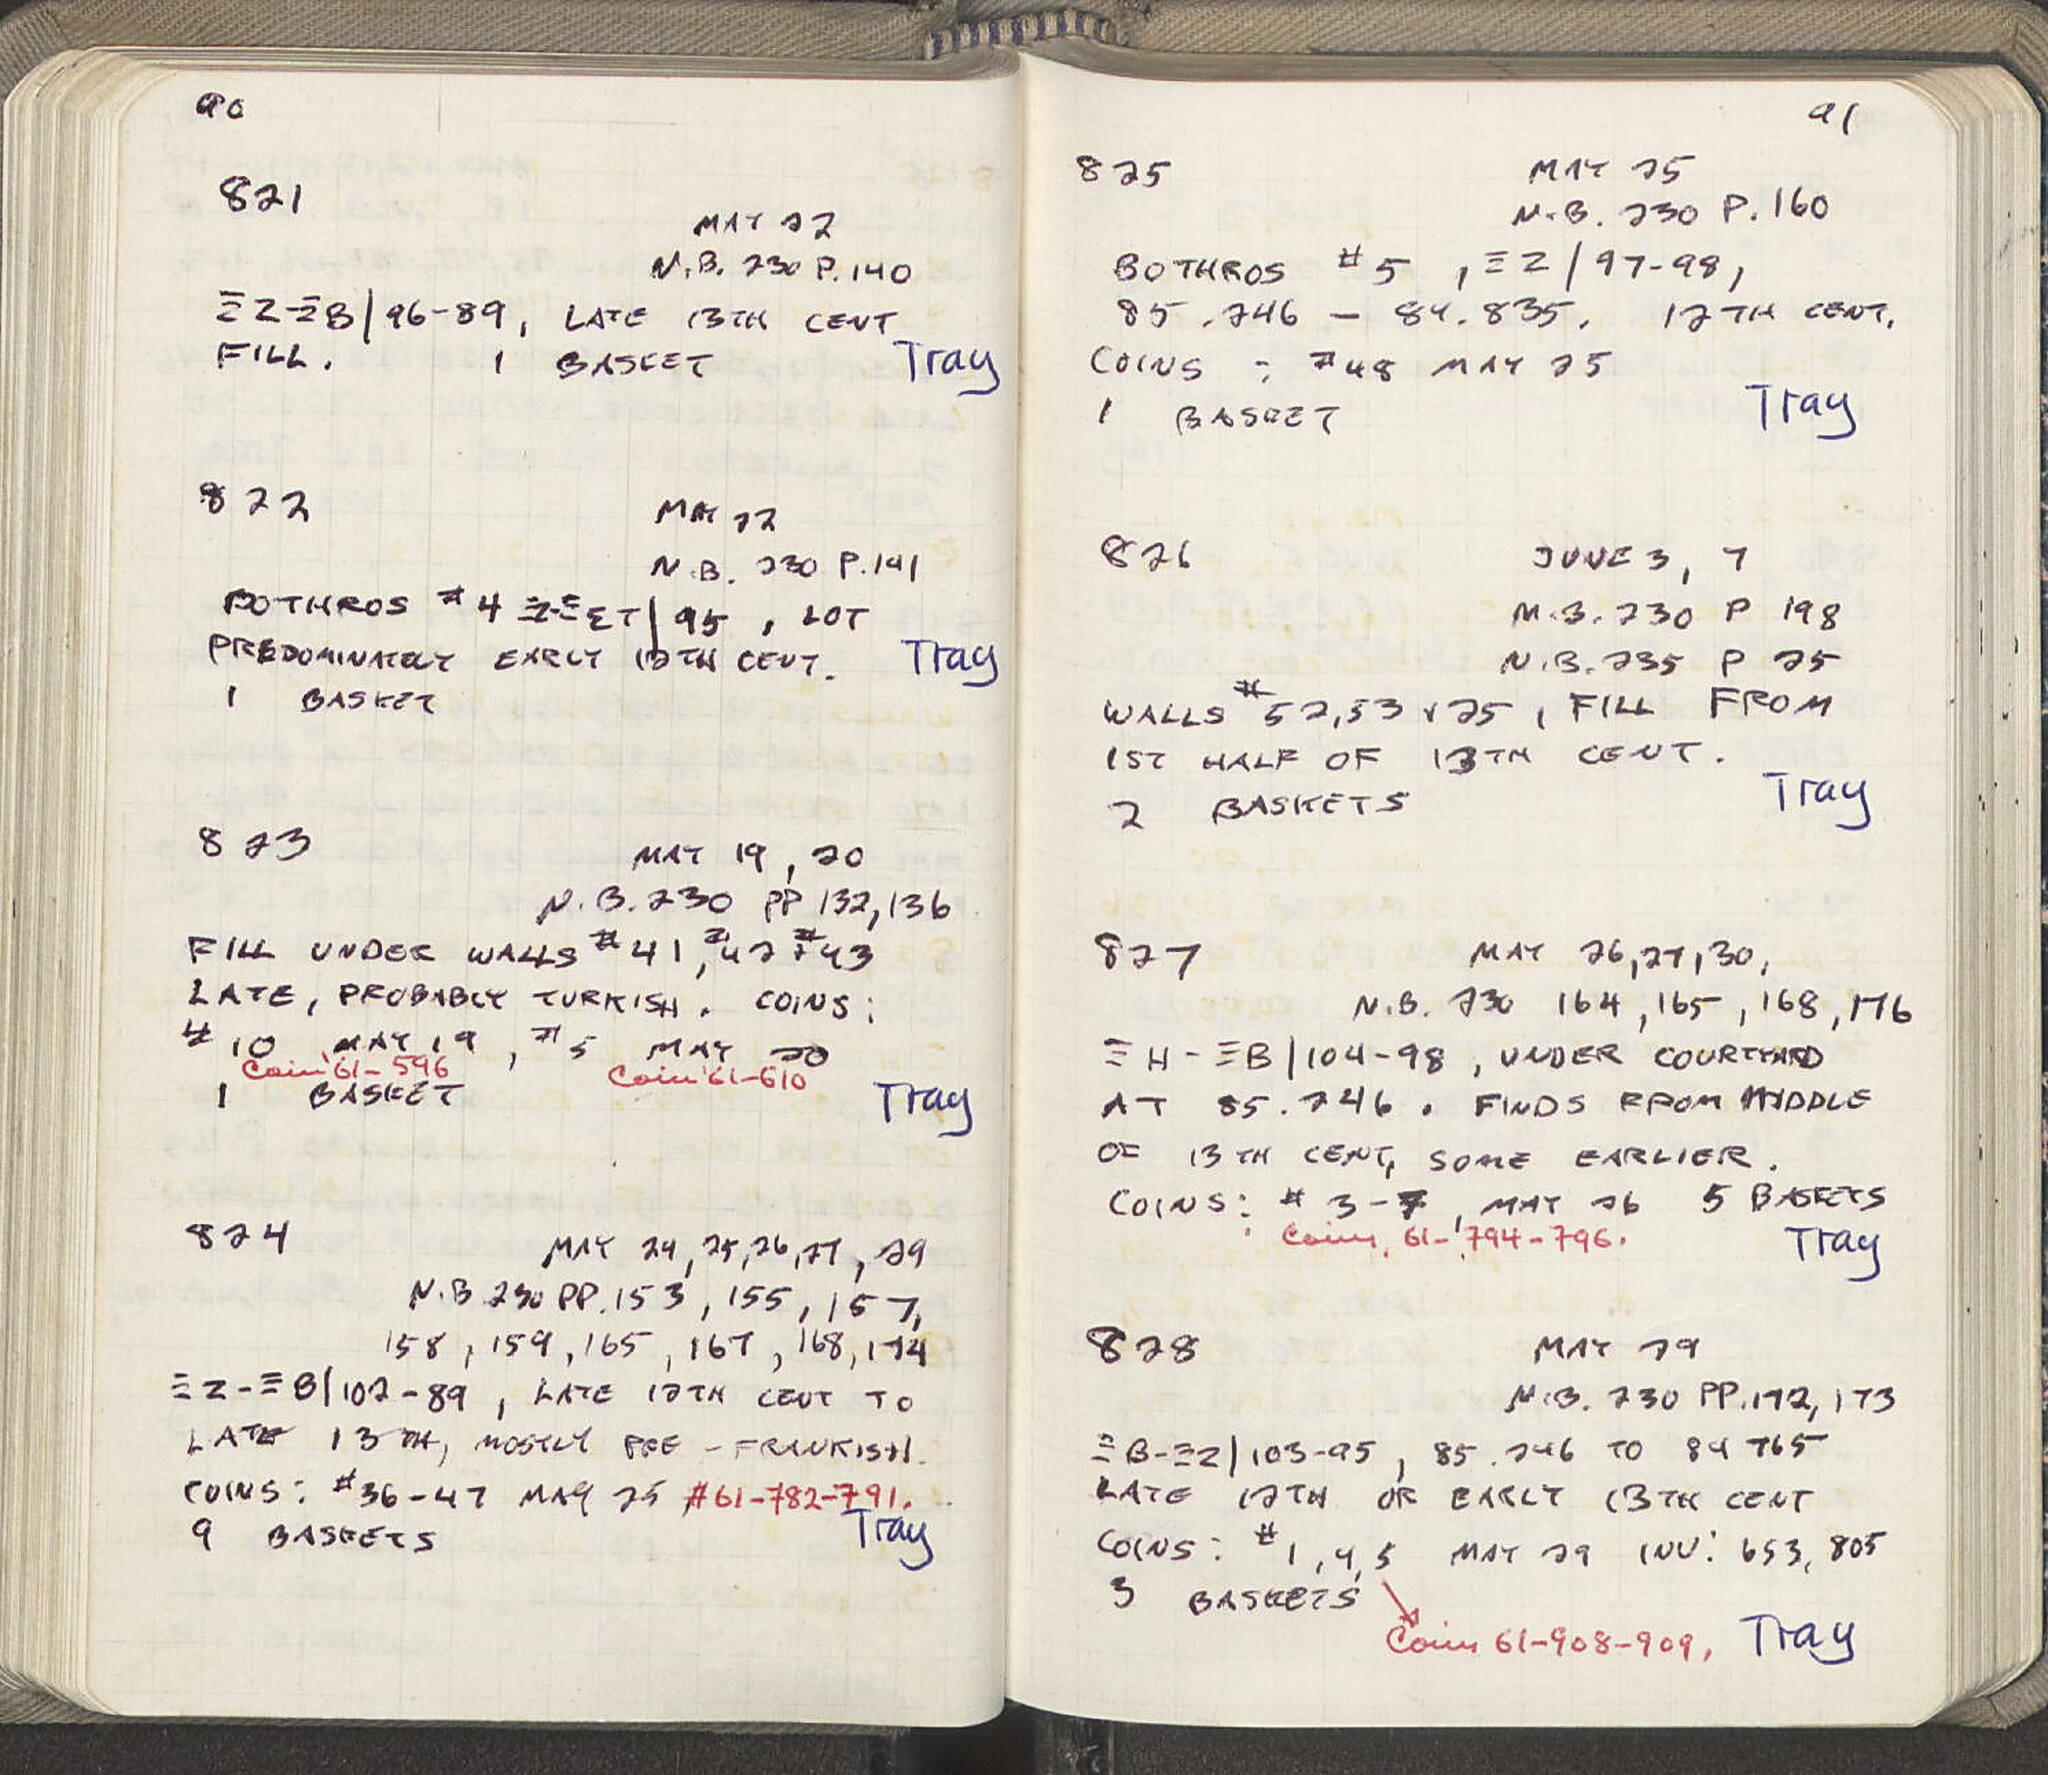 90
821
MAY 22
N.B. 230 P. 140
ΞZ-ΞB/96-89, LATE 13TH CENT
FILL. 1 BASKET Tray
822
MAY 22
N.B. 230 P. 141
BOTHROS #4 ΞZ-ΞΣT/95, LOT
PREDOMINATELY EARLY 12TH CENT. Tray
1 BASKET
823
MAY 19, 20
N.B. 230 PP 132, 136
FILL UNDER WALLS #41, #42 #43
LATE, PROBABLY TURKISH. COINS:
#10 MAY 19, #5 MAY 20
Coin '61-596 Coin '61-610
1 BASKET Tray
824
MAY 24, 25, 26, 27, 29
N.B 230 PP. 153, 155, 157,
158, 159, 165, 167, 168, 174
ΞZ-ΞB/102-89, LATE 12TH CENT TO
LATE 13TH, MOSTLY PRE-FRANKISH.
COINS: #36-47 MAY 25 #61-782-791.
9 BASKETS Tray
91
825
MAY 25
N.B. 230 P. 160
BOTHROS #5, ΞZ/97-98,
85.246 - 84.835. 12TH CENT.
COINS: #48 MAY 25
1 BASKET Tray
826
JUNE 3, 7
N.B. 230 P 198
N.B. 235 P 25
WALLS #52,53 + 25, FILL FROM
1ST HALF OF 13TH CENT.
2 BASKETS Tray
827
MAY 26,27,30,
N.B. 230 164, 165, 168, 176
ΞH-ΞB/104-98, UNDER COURTYARD
AT 85.246. FINDS FROM MIDDLE
OF 13TH CENT, SOME EARLIER.
COINS: #3-7, MAY 26 5 BASKETS
Coins, 61-794-796. Tray
828
MAY 29
N.B. 230 PP. 172, 173
ΞB-ΞZ/103-95, 85.246 TO 84 765
LATE 12TH OR EARLY 13TH CENT
COINS: #1,4,5 MAY 29 INV: 653, 805
3 BASKETS
Coins 61-908-909, Tray